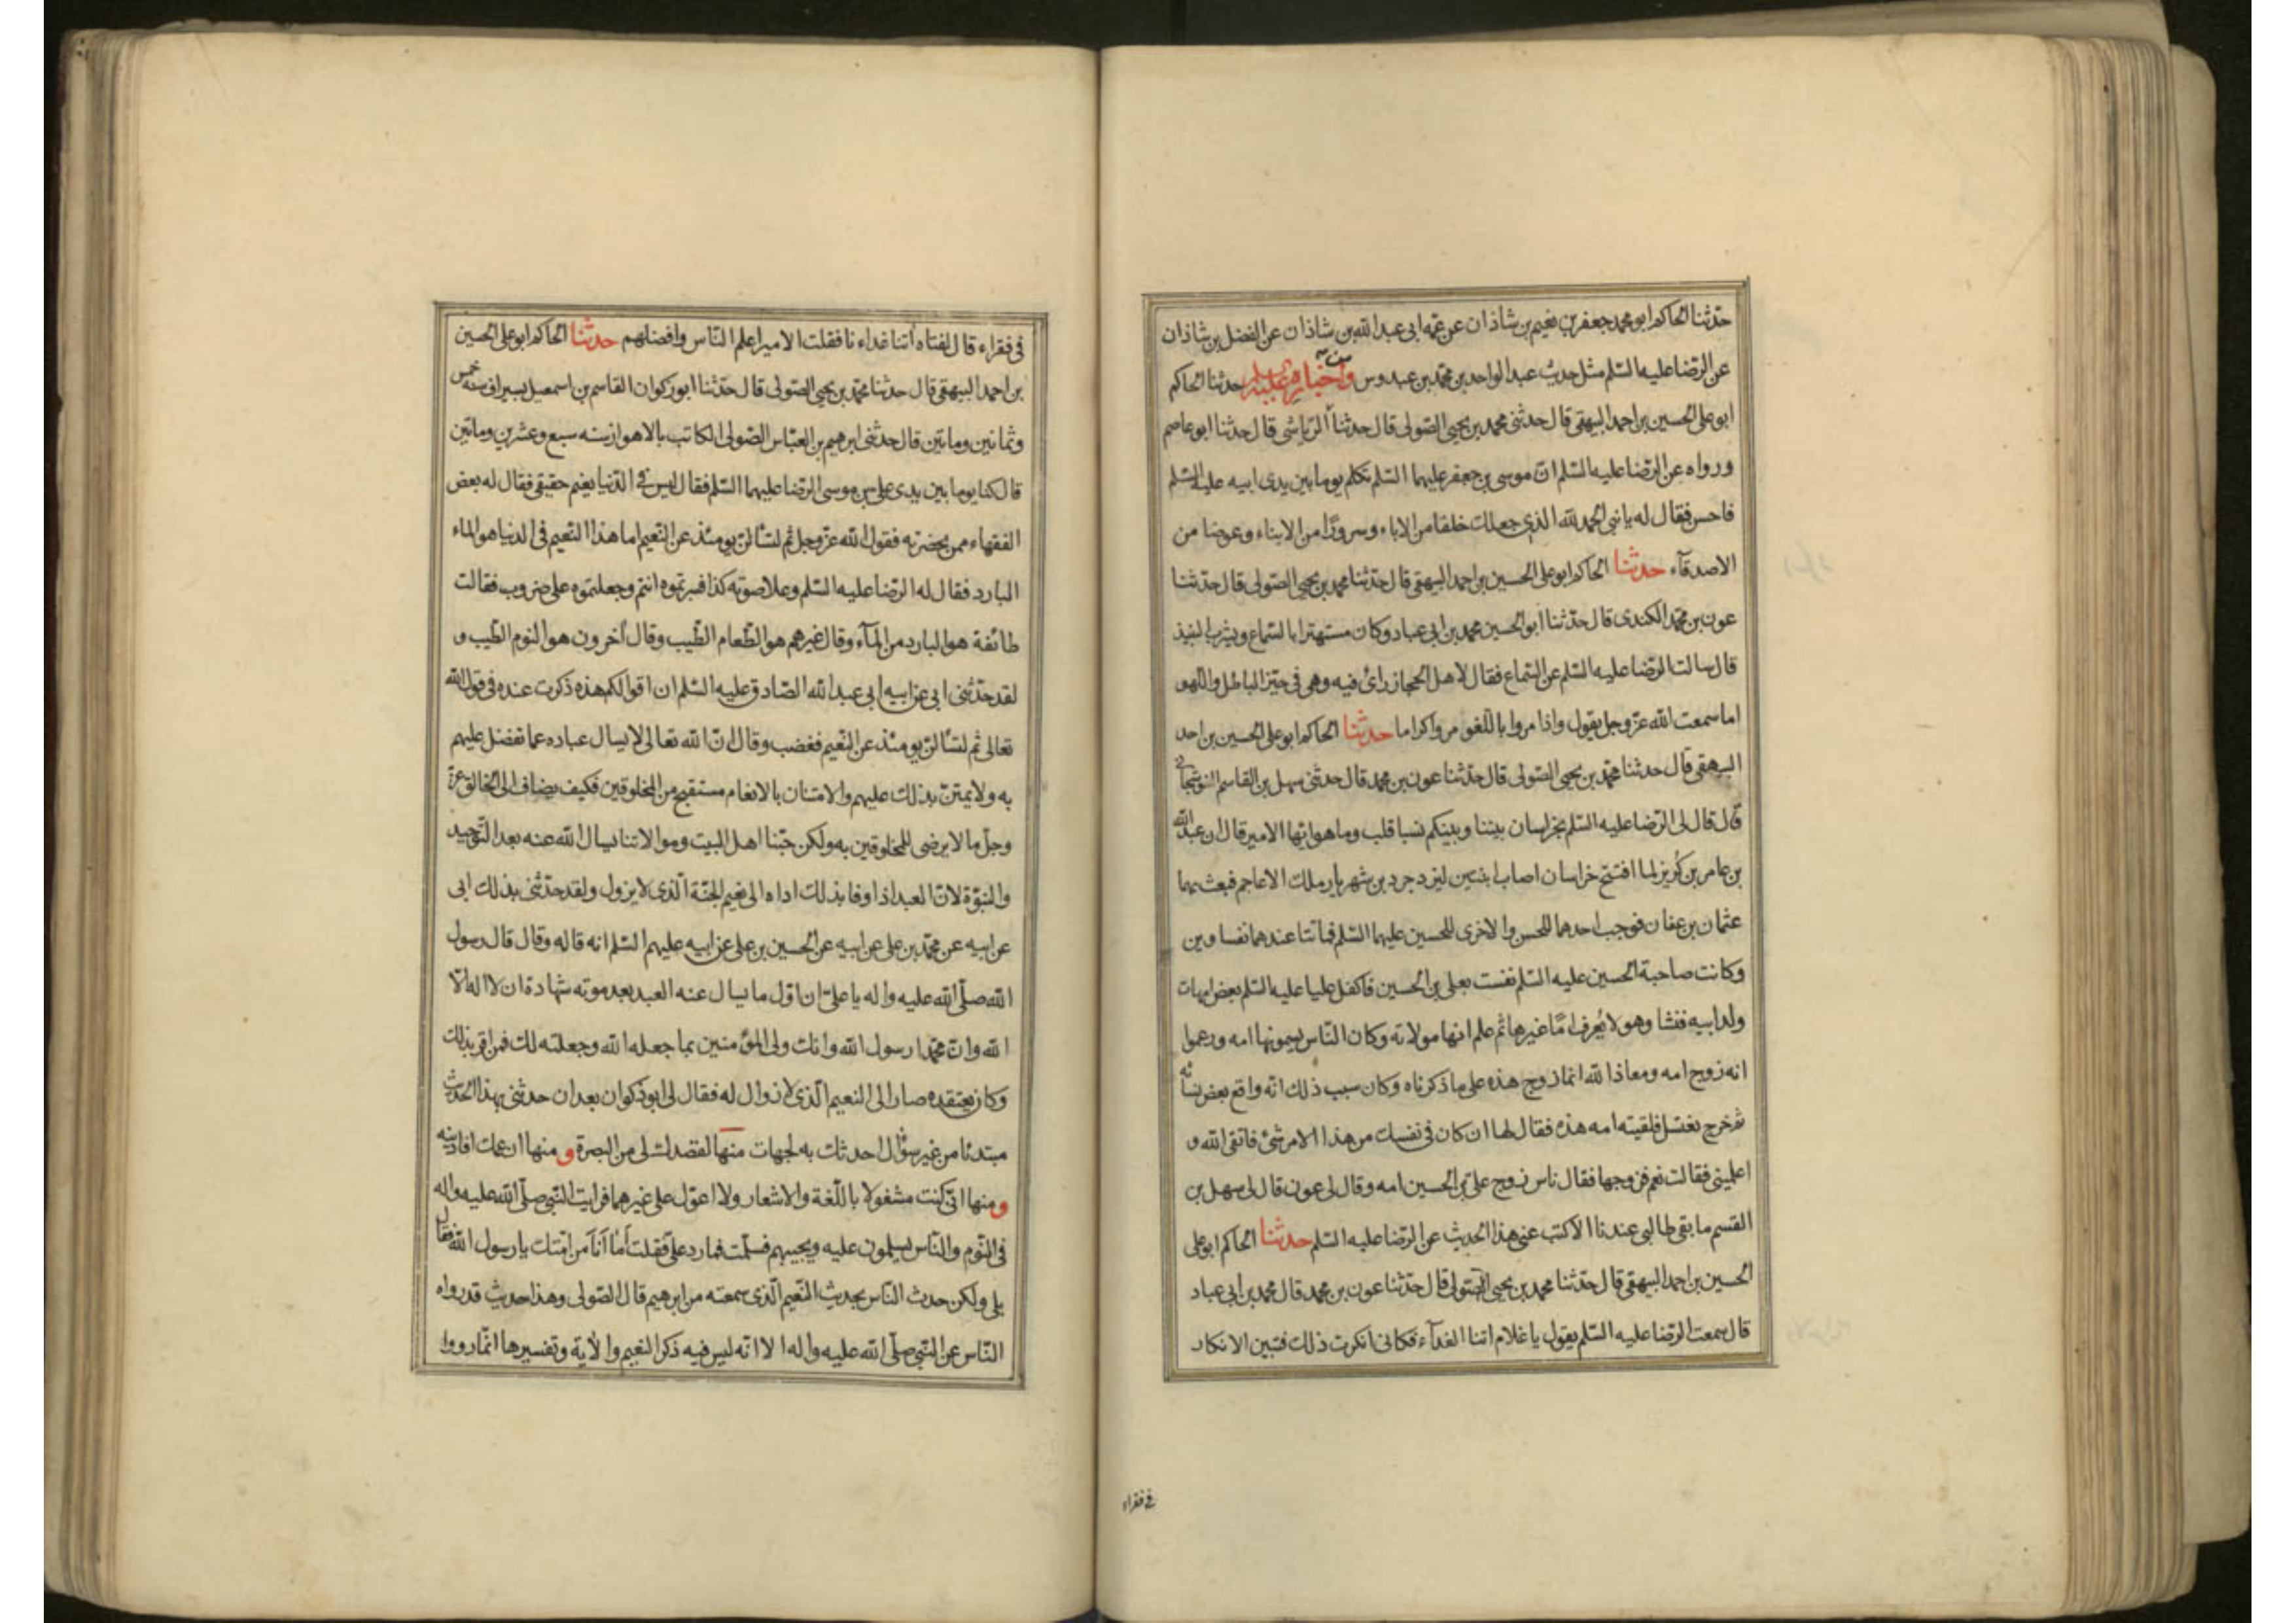 حدثنا الحاكم ابو محمد جعفر بن نعيم بن شاذان عن عمه ابى عبد الله بن شاذان عن الفضل بن شاذان
عن الرضا عليه السلم مثل حديث عبد الواحد بن محمد بن عبدوس ومن اخباره عليه السلم حدثنا الحاكم
ابو على الحسين بن احمد البيهقى قال حدثنى محمد بن يحيى الصولى قال حدثنا الرياشى قال حدثنا ابو عاصم
ورواه عن الرضا عليه السلم ان موسى بن جعفر عليهما السلم تكلم يوما بين يدى ابيه عليه السلم
فاحسن فقال له يا بنى الحمد لله الذى جعلك خلفا من الاباء وسرورًا من الابناء وعوضا من
الاصدقآء حدثنا الحاكم ابو على الحسين بن احمد البيهقى قال حدثنا محمد بن يحيى الصولى قال حدثنا
عون بن محمد الكندى قال حدثنا ابو الحسين محمد بن ابى عباد وكان مستهترا بالسماع ويشرب النبيذ
قال سالت الرضا عليه السلم عن السماع فقال لاهل الحجاز رائ فيه وهى فى حيز الباطل واللهو
اما سمعت الله عز وجل يقول واذا مروا باللغو مروا كراما حدثنا الحاكم ابو على الحسين بن احمد
البيهقى قال حدثنا محمد بن يحيى الصولى قال حدثنا عون بن محمد قال حدثنى سهل بن القاسم النوشجانى
قال قال لى الرضا عليه السلم بخراسان بيننا وبينكم نسبا قلب وما هو ايها الامير قال ان عبد الله
بن عامر بن كُريز لما افتتح خراسان اصاب ابنتين ليزدجرد بن شهريار ملك الاعاجم فبعث بهما
عثمان بن عفان فوجب احدهما للحسن والاخرى للحسين عليهما السلم فماتتا عندهما نفساوين
وكانت صاحبة الحسين عليه السلم نفست بعلى بن الحسين فاكفل عليا عليه السلم بعض امهات
ولد ابيه فنشا وهو لا يُعرف امًا غيرها ثم علم انها مولاته وكان الناس يسمونها امه وزعموا
انه زوج امه ومعاذ الله انما زوج هذه على ما ذكرناه وكان سبب ذلك انه واقع بعض نسائه
ثم خرج يغتسل فلقيته امه هذه فقال لها ان كان فى نفسك من هذا الامر شئ فاتقى الله و
اعلمينى فقالت نعم فزوجها فقال ناس زوج على بن الحسين امه وقال لى عون قال لى سهل بن
القسم ما بقى طالبى عندنا الا كتب عنى هذا الحديث عن الرضا عليه السلم حدثنا الحاكم ابو على
الحسين بن احمد البيهقى قال حدثنا محمد بن يحيى الصولى قال حدثنا عون بن محمد قال محمد بن ابى عباد
قال سمعت الرضا عليه السلم يقول يا غلام اتنا الغدآء فكانى انكرت ذلك فتبين الانكار
فى فقراء
فى فقراء قال لفتاه اتنا غداءنا فقلت الامير اعلم الناس وافضلهم حدثنا الحاكم ابو على الحسين
بن احمد البيهقى قال حدثنا محمد بن يحيى الصولى قال حدثنا ابو ذكوان القاسم بن اسمعيل بسيراف سنه خمس
وثمانين وماتين قال حدثنى ابرهيم بن العباس الصولى الكاتب بالاهواز سنه سبع وعشرين وماتين
قال كنا يوما بين يدى على بن موسى الرضا عليهما السلم فقال ليس فى الدنيا نعيم حقيقى فقال له بعض
الفقهاء ممن بحضرته فقول الله عز وجل ثم لتسألن يومئذ عن النعيم اما هذا النعيم فى الدنيا هو الماء
البارد فقال له الرضا عليه السلم وعلا صوته كذا فسرتموه انتم وجعلتموه على ضروب فقالت
طائفة هو البارد من المآء وقال غيرهم هو الطعام الطيب وقال اخرون هو النوم الطيب و
لقد حدثنى ابى عن ابيه ابى عبد الله الصادق عليه السلم ان اقوالكم هذه ذكرت عنده فى قول الله
تعالى ثم لتسألن يومئذ عن النعيم فغضب وقال ان الله تعالى لا يسال عباده عما تفضل عليهم
به ولا يمتن بذلك عليهم والامتنان بالانعام مستقبح من المخلوقين فكيف يضاف الى الخالق عز
وجل ما لا يرضى للمخلوقين به ولكن حبنا اهل البيت وموالاتنا يسال الله عنه بعد التوحيد
والنبوة لان العبد اذا وفا بذلك اداه الى نعيم الجنة الذى لا يزول ولقد حدثنى بذلك ابى
عن ابيه عن محمد بن على عن ابيه عن الحسين بن على عن ابيه عليهم السلم انه قاله وقال قال رسول
الله صلى الله عليه واله يا على ان اول ما يسال عنه العبد بعد موته شهادة ان لا اله الا
الله وان محمدا رسول الله وانك ولى المؤمنين بما جعله الله وجعلته لك فمن اقر بذلك
وكان يعتقده صار الى النعيم الذى لا زوال له فقال لى ابو ذكوان بعد ان حدثنى بهذا الحديث
مبتدئا من غير سؤال احدثك به لجهات منها لقصدك لى من البصرة و منها ان عمك افادنيه
ومنها انى كنت مشغولا باللغة والاشعار ولا اعول على غيرهما فرايت النبى صلى الله عليه واله
فى النوم والناس يسلمون عليه ويجيبهم فسلمت فما رد على فقلت أما أنا من امتك يا رسول الله فقال
بلى ولكن حدث الناس بحديث النعيم الذى سمعته من ابرهيم قال الصولى وهذا حديث قد رواه
الناس عن النبى صلى الله عليه واله الا انه ليس فيه ذكر النعيم والاية وتفسيرها انما رووا